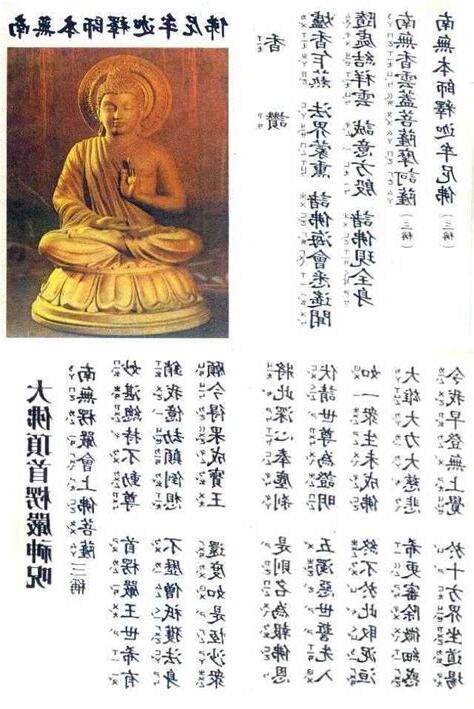 南無本師釋迦牟尼佛
香讚
爐香乍爇 法界蒙熏 諸佛海會悉遙聞
隨處結祥雲 誠意方殷 諸佛現全身
南無香雲蓋菩薩摩訶薩(三稱)
南無本師釋迦牟尼佛(三稱)
大佛頂首楞嚴神咒
南無楞嚴會上佛菩薩 三稱
妙湛總持不動尊 首楞嚴王世希有
銷我億劫顛倒想 不歷僧祇獲法身
願今得果成寶王 還度如是恆沙眾
將此深心奉塵剎 是則名為報佛恩
伏請世尊為證明 五濁惡世誓先入
如一眾生未成佛 終不於此取泥洹
大雄大力大慈悲 希更審除微細惑
今我早登無上覺 於十方界坐道場